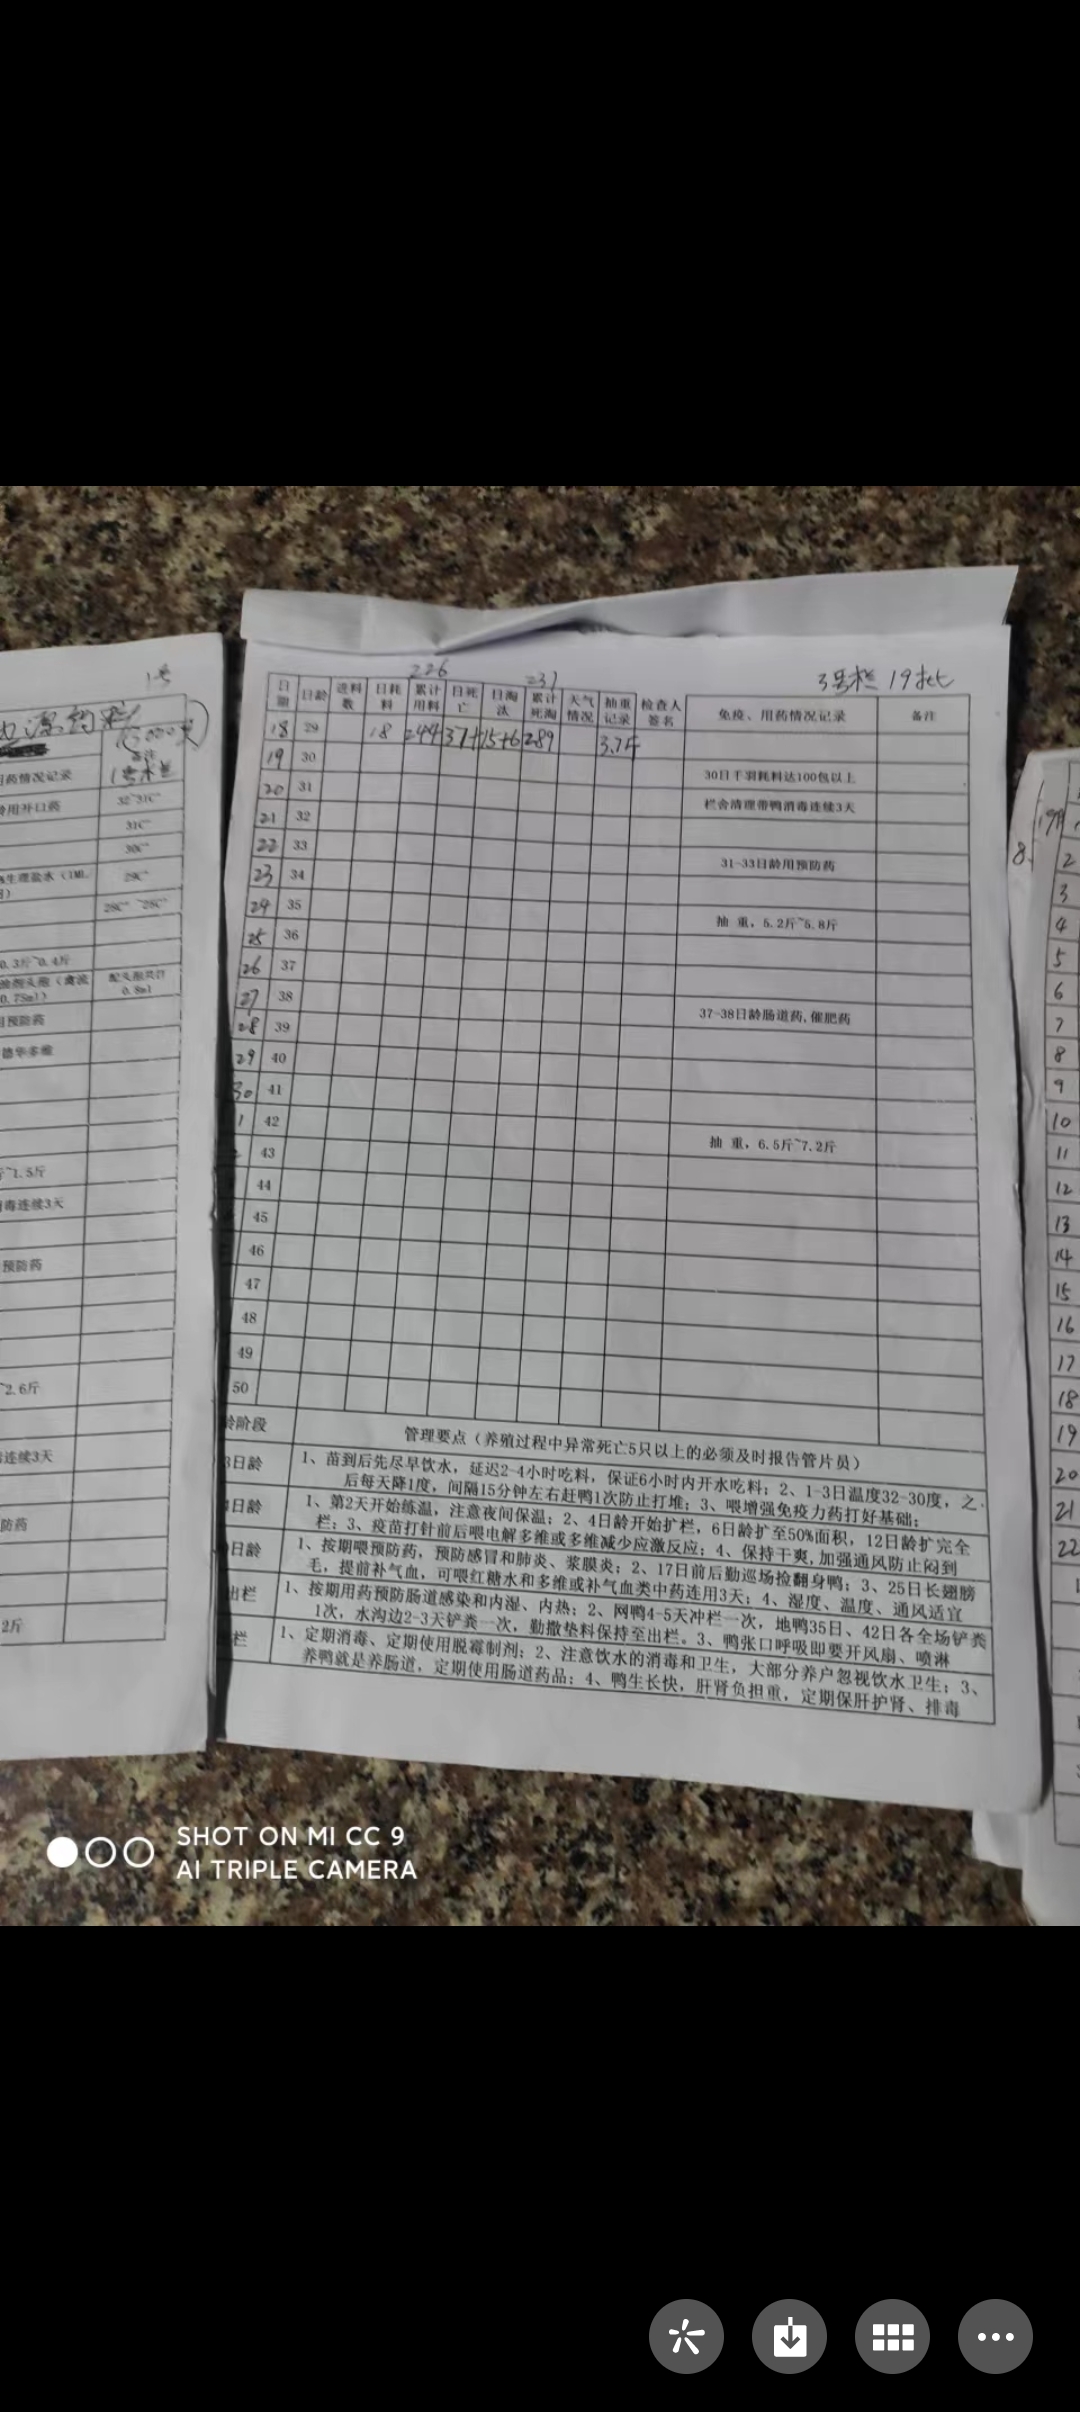 1号
(5000只)
备注
用药情况记录
1号木兰
龄用开口药
32~31C°
31C°
30C°
生理盐水(1ML
29C°
28C° ~28C°
0.3斤~0.4斤
0.75ml)
0.8ml
用预防药
德华多维
斤~1.5斤
消毒连续3天
预防药
~2.6斤
连续3天
防药
2斤
226 237 3号栏 19批
日期 日龄 进料数 日耗料 累计用料 日死亡 日淘汰 累计死淘 天气情况 抽重记录 检查人签名 免疫、用药情况记录 备注
18 29 18 244 37+15+6 289 3.7斤
19 30 30日千羽耗料达100包以上
20 31 栏舍清理带鸭消毒连续3天
21 32
22 33 31-33日龄用预防药
23 34
24 35 抽 重,5.2斤~5.8斤
25 36
26 37
27 38 37-38日龄肠道药,催肥药
28 39
29 40
30 41
1 42 抽 重,6.5斤~7.2斤
2 43
44
45
46
47
48
49
50
龄阶段 管理要点(养殖过程中异常死亡5只以上的必须及时报告管片员)
3日龄 1、苗到后先尽早饮水,延迟2-4小时吃料,保证6小时内开水吃料;2、1-3日温度32-30度,之
后每天降1度,间隔15分钟左右赶鸭1次防止打堆;3、喂增强免疫力药打好基础;
日龄 1、第2天开始练温,注意夜间保温;2、4日龄开始扩栏,6日龄扩至50%面积,12日龄扩完全
栏;3、疫苗打针前后喂电解多维或多维减少应激反应;4、保持干爽,加强通风防止闷到
日龄 1、按期喂预防药,预防感冒和肺炎、浆膜炎;2、17日前后勤巡场捡翻身鸭;3、25日长翅膀
毛,提前补气血,可喂红糖水和多维或补气血类中药连用3天;4、湿度、温度、通风适宜
出栏 1、按期用药预防肠道感染和内湿、内热;2、网鸭4-5天冲栏一次,地鸭35日、42日各全场铲粪
1次,水沟边2-3天铲粪一次,勤撒垫料保持至出栏。3、鸭张口呼吸即要开风扇、喷淋
栏 1、定期消毒、定期使用脱霉制剂;2、注意饮水的消毒和卫生,大部分养户忽视饮水卫生;3、
养鸭就是养肠道,定期使用肠道药品;4、鸭生长快,肝肾负担重,定期保肝护肾、排毒
8
2
3
4
5
6
7
8
9
10
11
12
13
14
15
16
17
18
19
20
21
22
SHOT ON MI CC 9
AI TRIPLE CAMERA